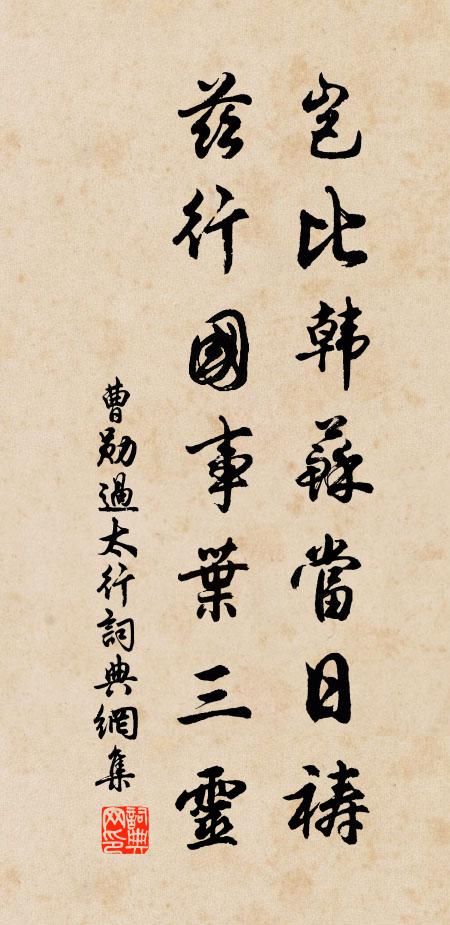 豈比韓蘇當日禱
茲行國事葉三靈
曹勛過太行詞典網集
詞典网印